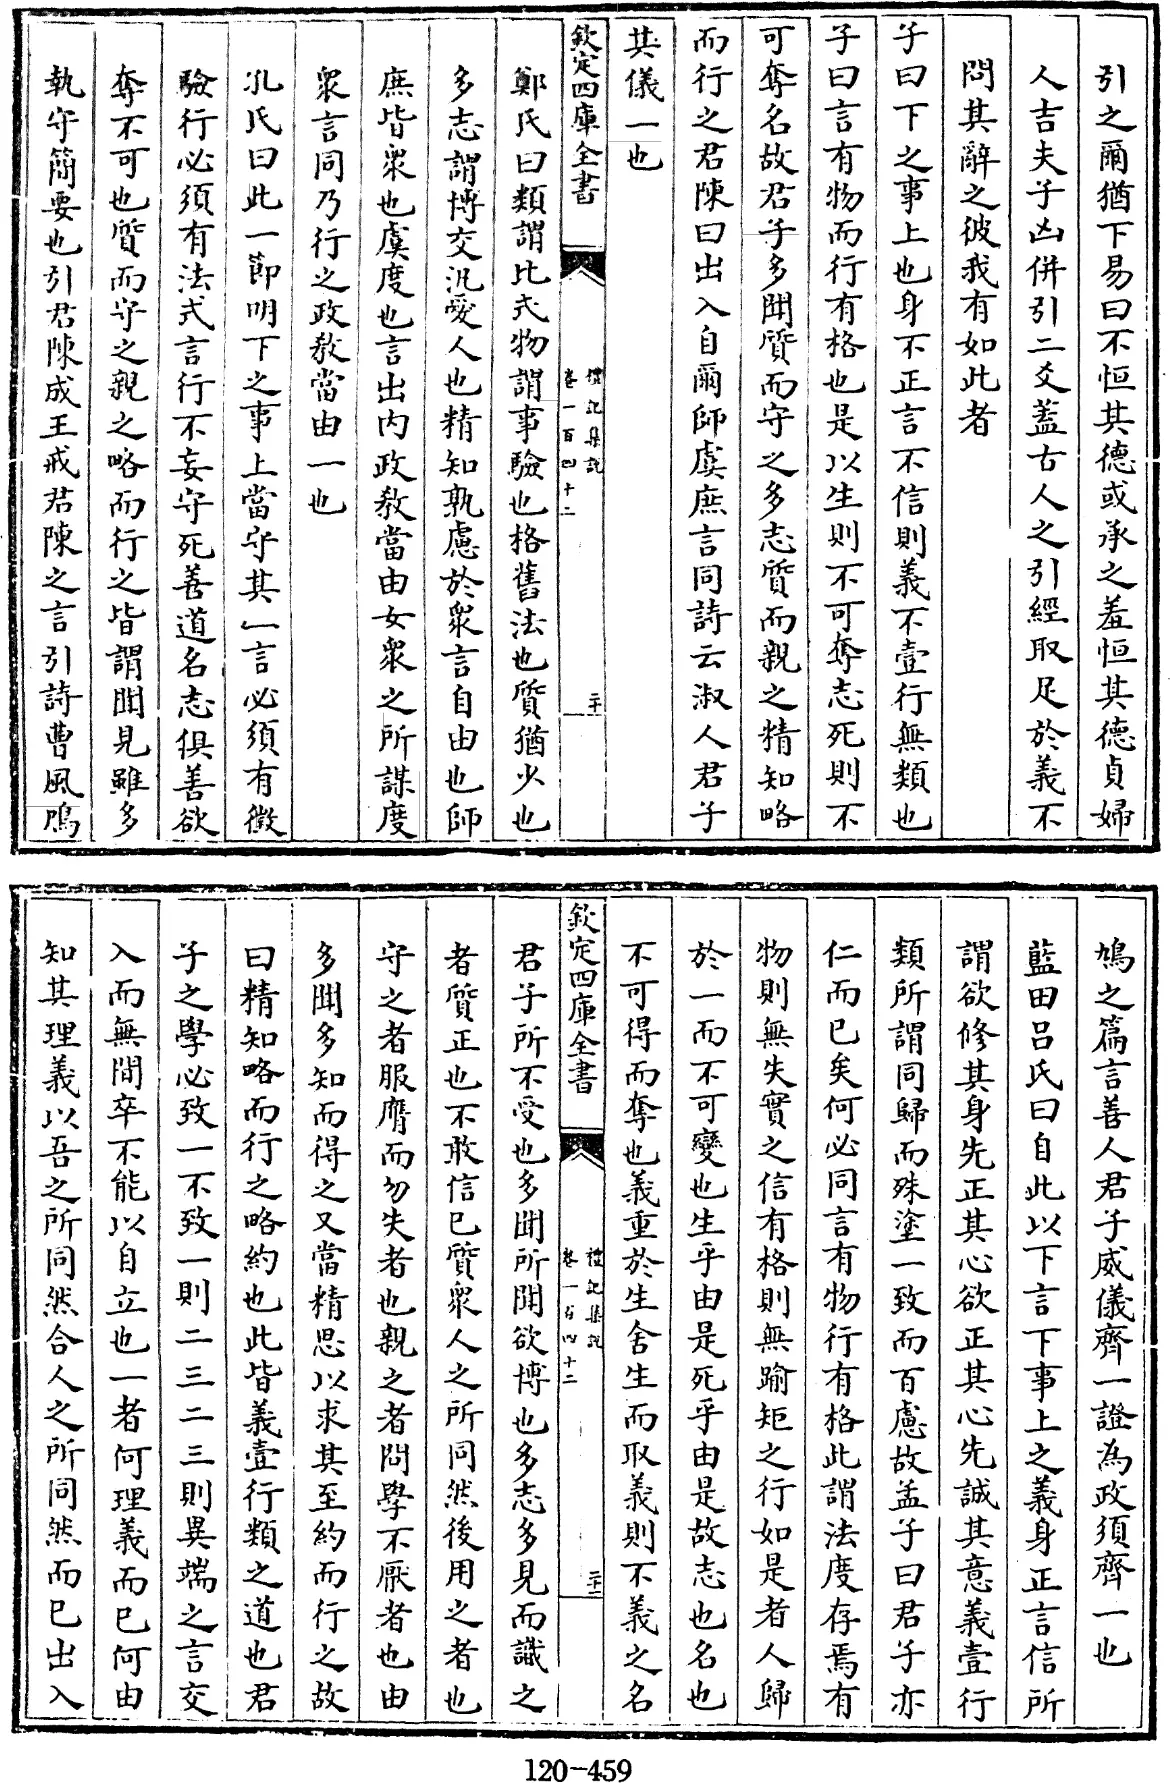 引之爾猶下易曰不恒其德或承之羞恒其德貞婦
人吉夫子凶併引二爻蓋古人之引經取足於義不
問其辭之彼我有如此者
子曰下之事上也身不正言不信則義不壹行無類也
子曰言有物而行有格也是以生則不可奪志死則不
可奪名故君子多聞質而守之多志質而親之精知略
而行之君陳曰出入自爾師虞庶言同詩云淑人君子
其儀一也
欽定四庫全書
禮記集說
卷一百四十二
二十
鄭氏曰類謂比式物謂事驗也格舊法也質猶少也
多志謂博交汎愛人也精知孰慮於衆言自由也師
庶皆衆也虞度也言出內政教當由女衆之所謀度
衆言同乃行之政教當由一也
孔氏曰此一節明下之事上當守其一言必須有徵
驗行必須有法式言行不妄守死善道名志俱善欲
奪不可也質而守之親之略而行之皆謂聞見雖多
執守簡要也引君陳成王戒君陳之言引詩曹風鳲
鳩之篇言善人君子威儀齊一證為政須齊一也
藍田呂氏曰自此以下言下事上之義身正言信所
謂欲修其身先正其心欲正其心先誠其意義壹行
類所謂同歸而殊塗一致而百慮故孟子曰君子亦
仁而已矣何必同言有物行有格此謂法度存焉有
物則無失實之信有格則無踰矩之行如是者人歸
於一而不可變也生乎由是死乎由是故志也名也
不可得而奪也義重於生舍生而取義則不義之名
欽定四庫全書
禮記集說
卷一百四十二
二十一
君子所不受也多聞所聞欲博也多志多見而識之
者質正也不敢信已質衆人之所同然後用之者也
守之者服膺而勿失者也親之者問學不厭者也由
多聞多知而得之又當精思以求其至約而行之故
曰精知略而行之略約也此皆義壹行類之道也君
子之學必致一不致一則二三二三則異端之言交
入而無間卒不能以自立也一者何理義而已何由
知其理義以吾之所同然合人之所同然而已出入
120-459